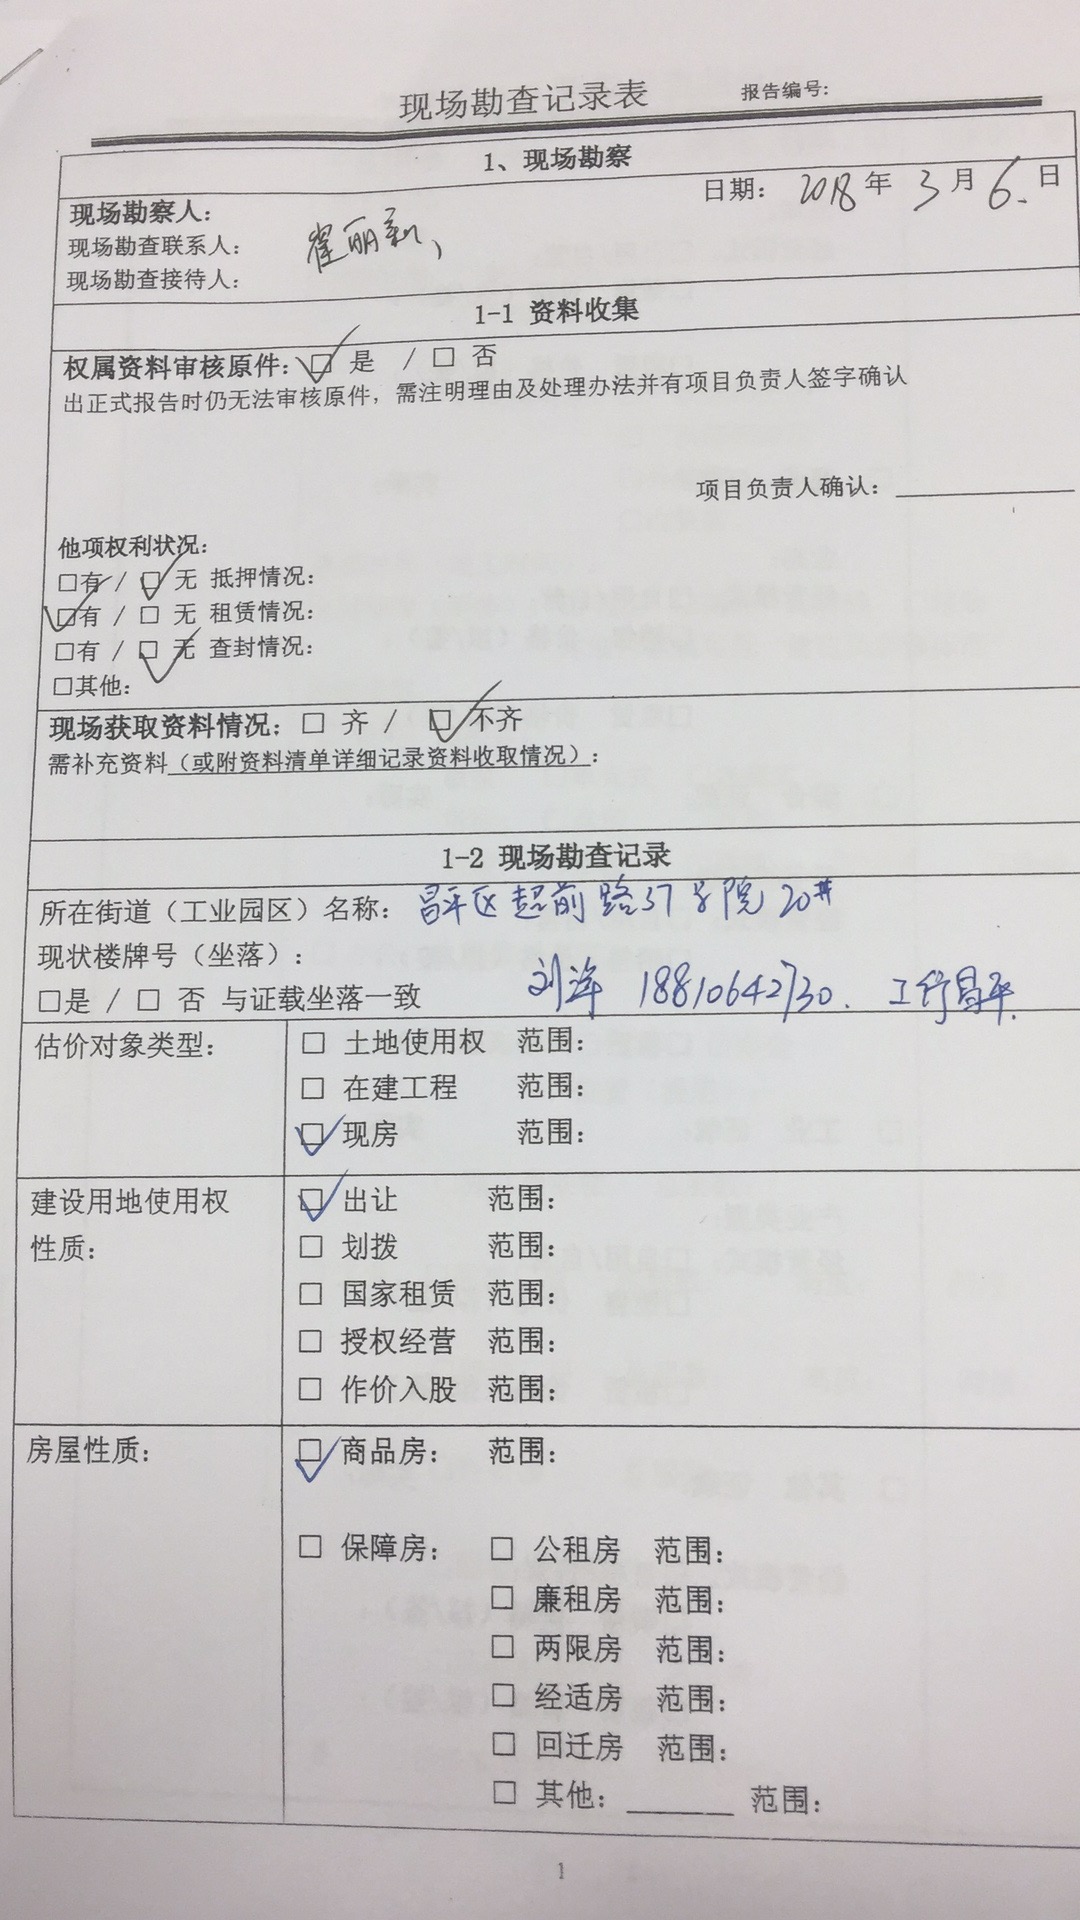 现场勘查记录表 报告编号:
1、现场勘察
日期: 2018年 3月 6日
现场勘察人:
现场勘查联系人: 崔丽新
现场勘查接待人:
1-1 资料收集
权属资料审核原件: ☑ 是 / □ 否
出正式报告时仍无法审核原件, 需注明理由及处理办法并有项目负责人签字确认
项目负责人确认:
他项权利状况:
□有 / ☑ 无 抵押情况:
☑有 / □ 无 租赁情况:
□有 / ☑ 无 查封情况:
□其他:
现场获取资料情况: □ 齐 / ☑ 不齐
需补充资料(或附资料清单详细记录资料收取情况):
1-2 现场勘查记录
所在街道(工业园区)名称: 昌平区超前路37号院20#
现状楼牌号(坐落):
□是 / □ 否 与证载坐落一致 刘洋 18810642730. 工行昌平.
估价对象类型:
□ 土地使用权 范围:
□ 在建工程 范围:
☑ 现房 范围:
建设用地使用权
性质:
☑ 出让 范围:
□ 划拨 范围:
□ 国家租赁 范围:
□ 授权经营 范围:
□ 作价入股 范围:
房屋性质:
☑ 商品房: 范围:
□ 保障房: □ 公租房 范围:
□ 廉租房 范围:
□ 两限房 范围:
□ 经适房 范围:
□ 回迁房 范围:
□ 其他: ______ 范围:
1